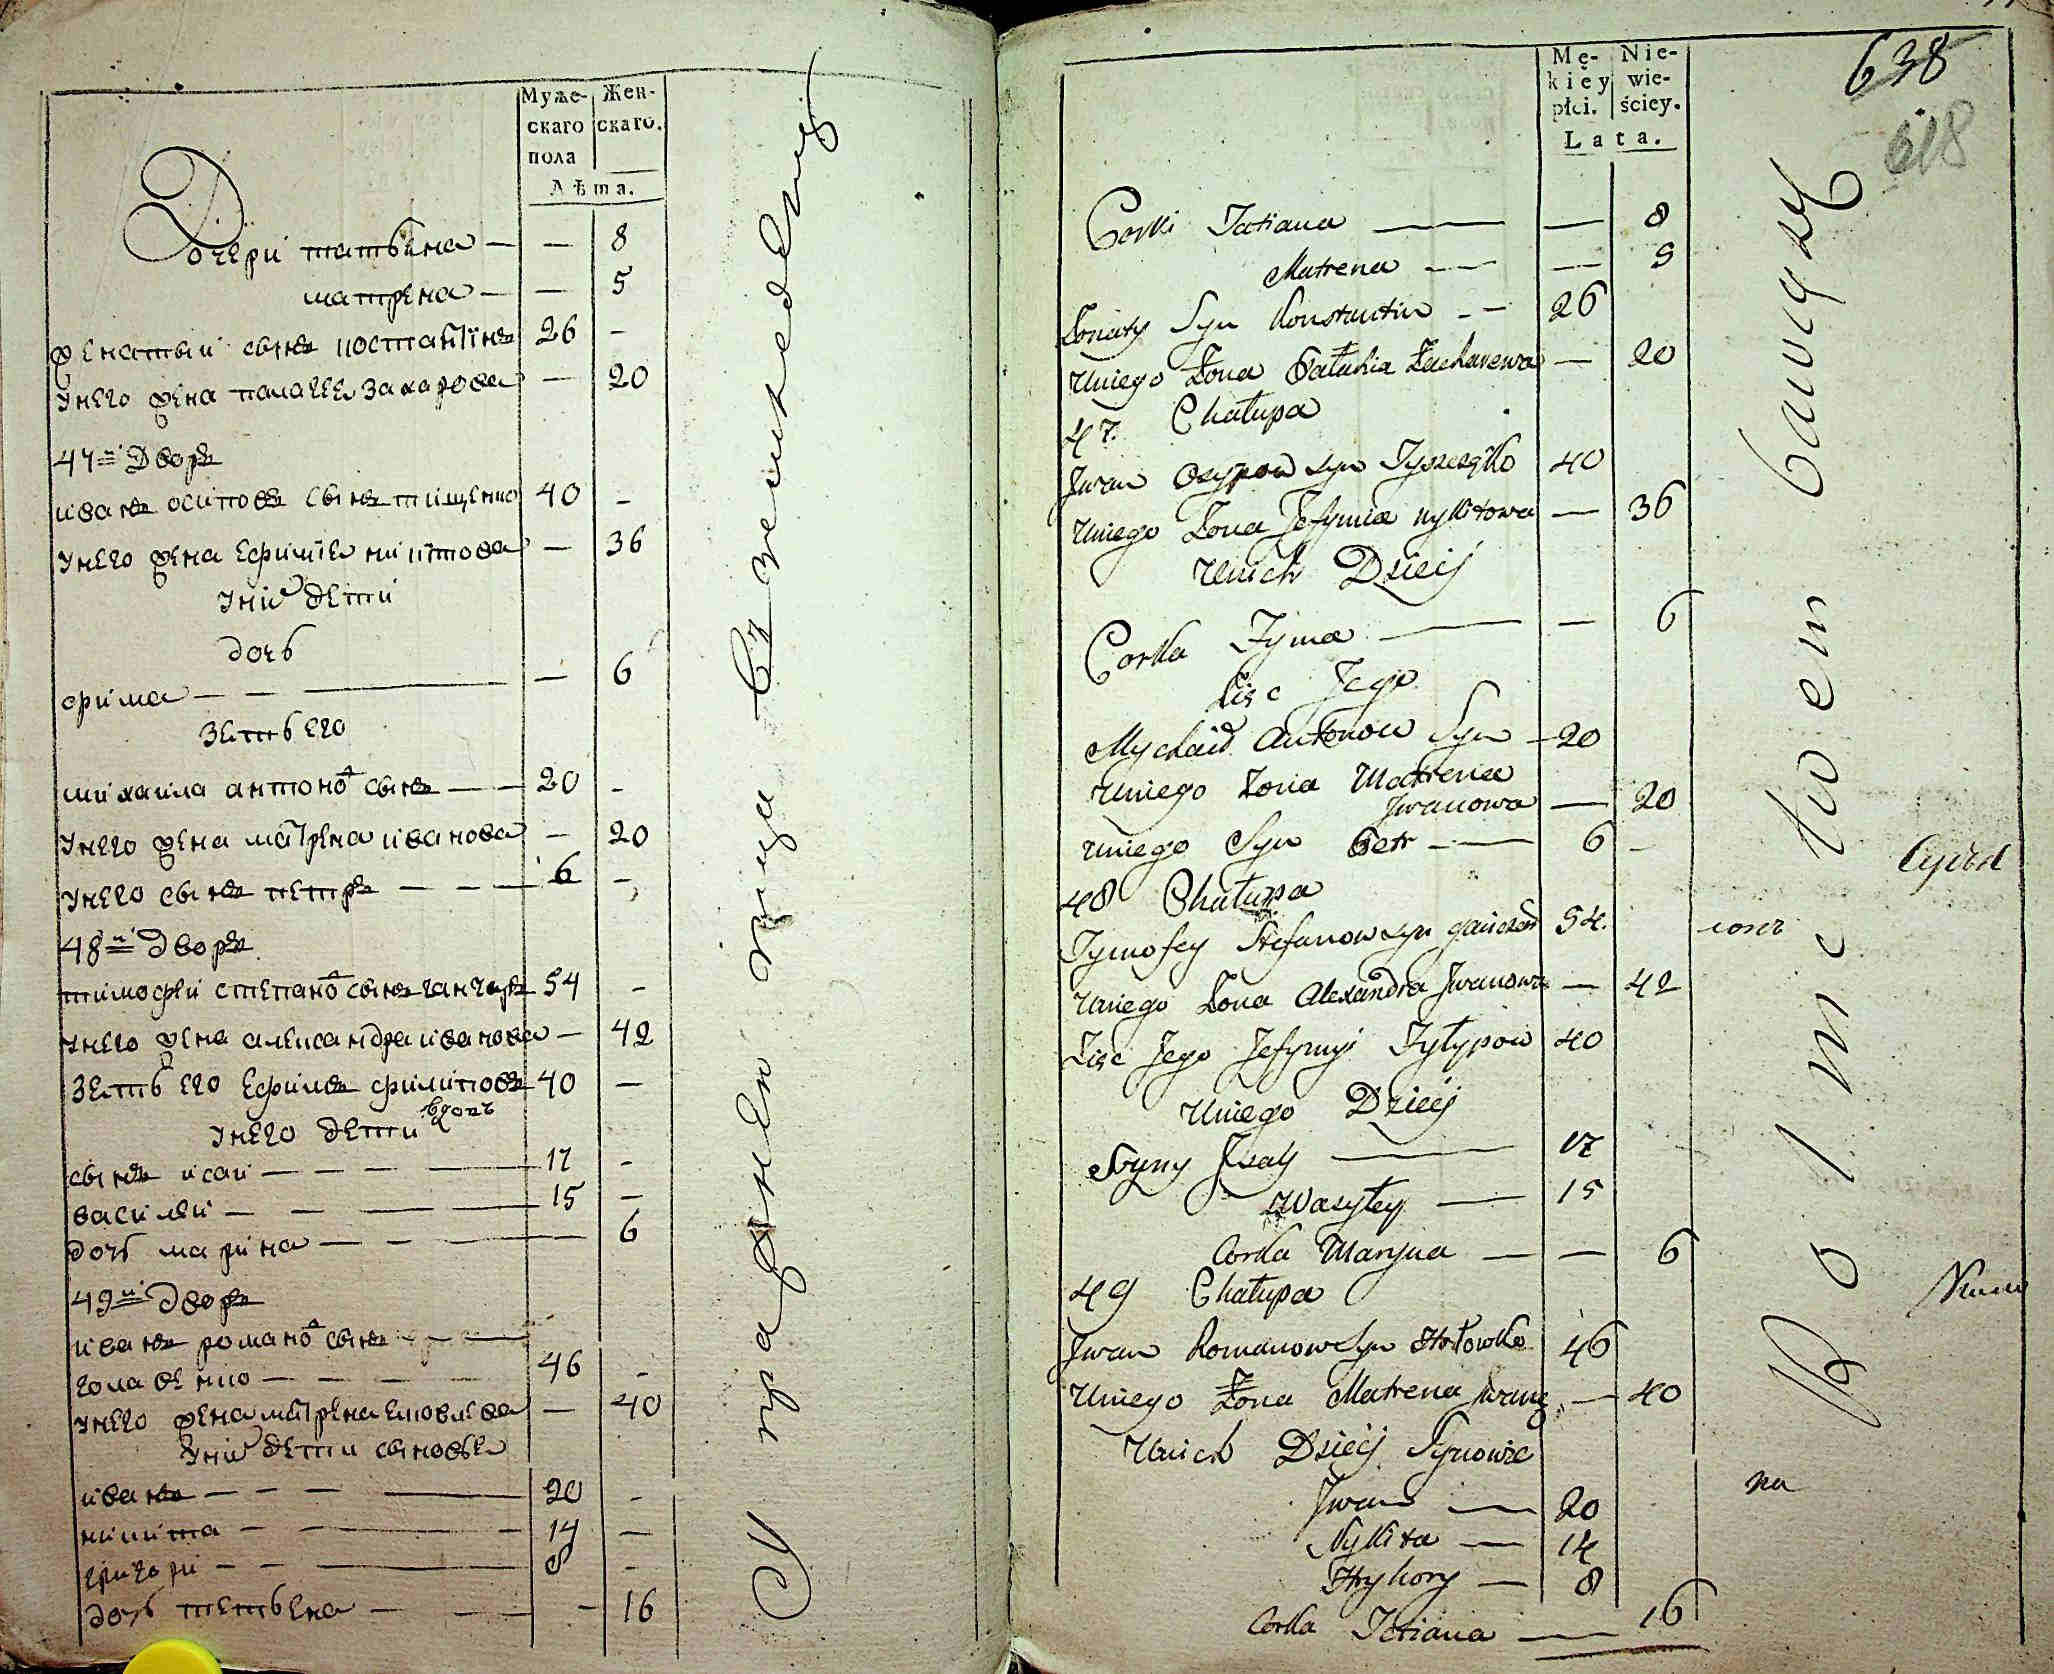 Муже-
скаго
пола
Жен-
скаго.
Лѣта.
Дочери татьяна — — 8
матрена — — 5
женатый сынъ костантінъ 26 –
унего жена палагея захарова — 20
47й Дворъ
иванъ осиповъ сынъ тищенко 40 –
унего жена ефимія никитова — 36
уних дети
дочь
фима — — — — 6
зять его
михаила антонов сынъ — — 20 –
унего жена матрена иванова — 20
унего сынъ петръ — — — 6 –
48й дворъ
тимофей степанов сынъ ганчаръ 54 –
унего жена александра иванова — 42
зять его ефимъ филиповъ 40 —
унего дети
сынъ исай — — — — 17 –
василей — — — — 15 —
дочь марина — — — — 6
49й дворъ
иванъ романов сынъ — — —
головенко — — — — 46 –
унего жена матрена яковлева — 40
уних дети сыновья
иванъ — — — — 20 –
никита — — — — 14 —
григори — — — 8 –
дочь татьяна — — — – 16
Упражненіи
Mę-
kiéy
płci.
Nie-
wie-
ściey.
Lata.
638
618
Corki Tatiana — — 8
Matrena — — 5
Żonaty Syn Konstantin — 26
Uniego Żona Pałahia Zacharewa — 20
47. Chałupa
Jwan Osypow syn Tyszczęko 40
Uniego Żona Jefymia Nykitowa — 36
Unich Dzieci
Corka Fyma — — 6
Zięc Jego
Mychaiło Antonow Syn – 20
Uniego Żona Matrena
Jwanowa — 20
Uniego Syn Petr — — 6 –
48 Chałupa
Tymofey Stefanow syn ganczar 54.
Uniego Żona Alexandra Jwanowa — 42
Zięc Jego Jefymyi Fyłypow 40
Uniego Dzieci
Syny Jsay — 17
Wasyłey — 15
Corka Maryna — — 6
49 Chałupa
Jwan Romanow Syn Hołowko 46
Uniego Żona Matrena — 40
Unich Dzieci Synowie
Jwan — 20
Nykita — 14
Hryhory — 8
Corka Tatiana — 16
na